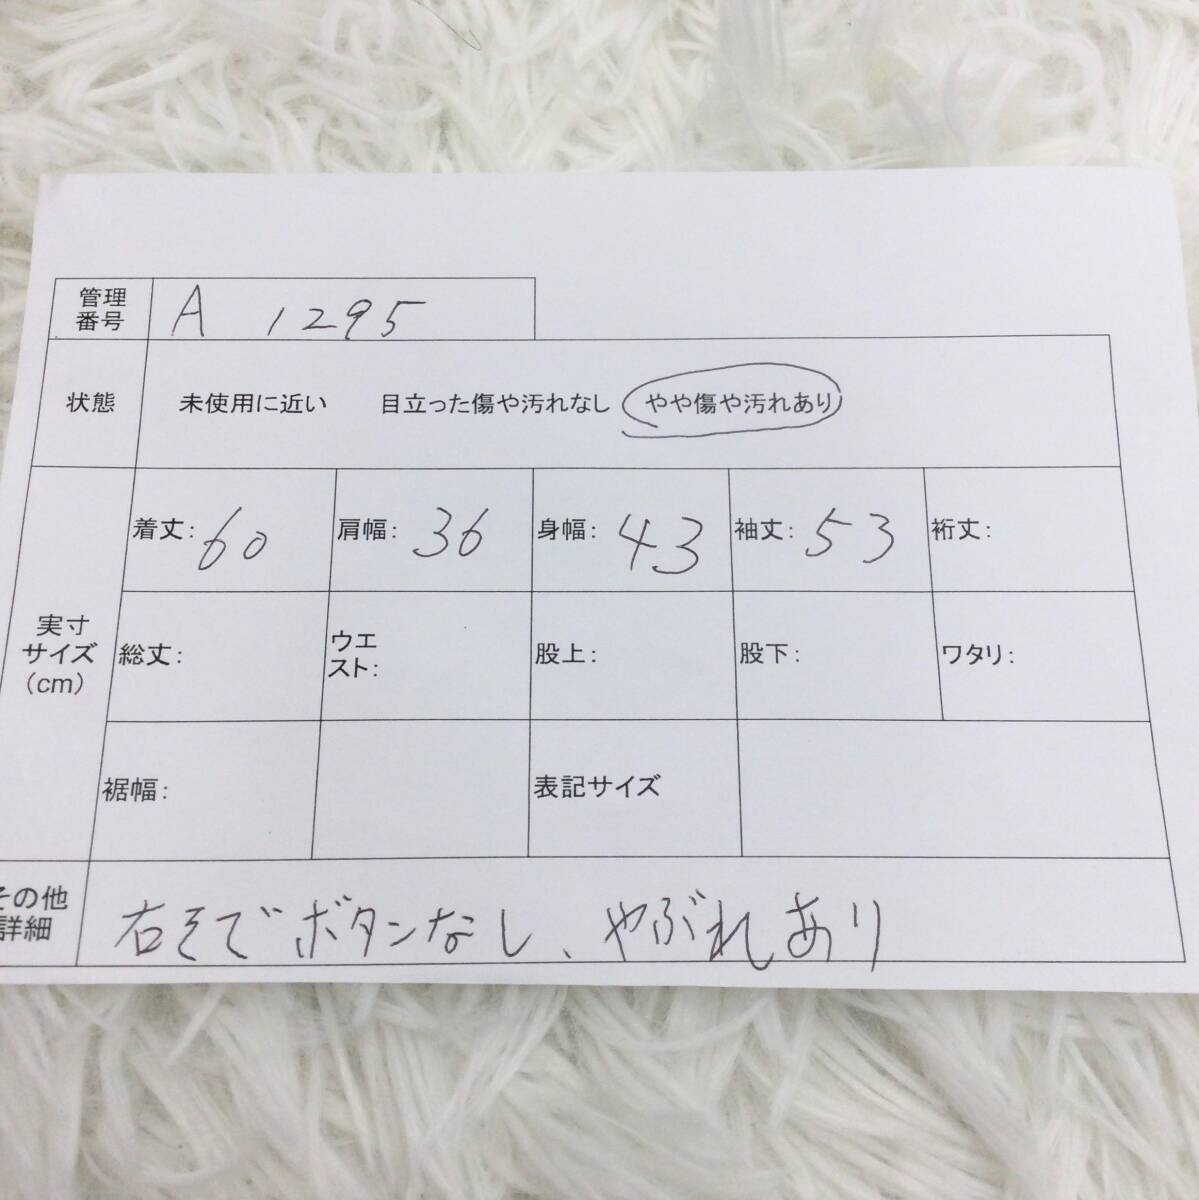 管理
番号
A 1295
状態
未使用に近い 目立った傷や汚れなし やや傷や汚れあり
実寸
サイズ
(cm)
着丈: 60 肩幅: 36 身幅: 43 袖丈: 53 裄丈:
総丈: ウエ
スト: 股上: 股下: ワタリ:
裾幅: 表記サイズ
その他
詳細
右そでボタンなし、やぶれあり